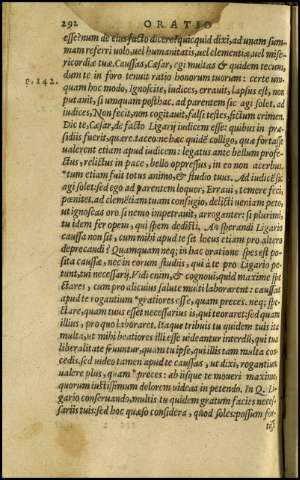 292 ORATIO
esse? num de eius facto dixi? etquicquid dixi, ad unam sum-
mam referri uolo, uel humanitatis, uel clementiæ, uel mise-
ricordiæ tuæ. Caussas, Cæsar, egi multas & quidem tecum,
dum te in foro tenuit ratio honorum tuorum: certe num-
p. 142. quam hoc modo, Ignoscite, iudices, errauit, lapsus est, non
putauit, si umquam posthac. ad parentem sic agi solet. ad
iudices, Non fecit, non cogitauit, falsi testes, fictum crimen.
Dic te, Cæsar, de facto Ligarij iudicem esse: quibus in præ-
sidijs fuerit, quære. taceo: ne hæc quidē colligo, quæ fortasse
ualerent etiam apud iudicem: legatus ante bellum profe-
ctus, relictus in pace, bello oppressus, in eo non acerbus.
*tum etiam fuit totus animo, & studio tuus. Ad iudicē sic
agi solet: sed ego ad parentem loquor, Erraui, temere feci,
pœnitet. ad clemētiam tuam confugio, delicti ueniam peto,
ut ignoscas oro. si nemo impetrauit, arroganter: si plurimi,
tu idem fer opem, qui spem dedisti. An sperandi Ligario
caussa non sit, cum mihi apud te sit locus etiam pro altero
deprecandi? Quamquam neq; in hac oratione spes est po-
sita caussæ, nec in eorum studiis, qui à te pro Ligario pe-
tunt, tui necessarij. Vidi enim, & cognoui, quid maxime spe
ctares, cum pro alicuius salute multi laborarent: caussas
apud te rogantium *gratiores esse, quam preces. neq; spe-
ctare, quam tuus esset necessarius is, qui te oraret: sed quam
illius, pro quo laboraret. Itaque tribuis tu quidem tuis ita
multa, ut mihi beatiores illi esse uideantur interdū, qui tua
liberalitate fruuntur, quam tu ipse, qui illis tam multa con-
cedis. sed uideo tamen apud te caussas, ut dixi, rogantium
ualere plus, quam *preces: ab iisque te moueri maxime,
quorum iustissimum dolorem uideas in petendo. In Q. Li-
gario conseruando, multis tu quidem gratum facies neces-
sarijs tuis: sed hoc quæso considera, quod soles: possum for-
tiſ-